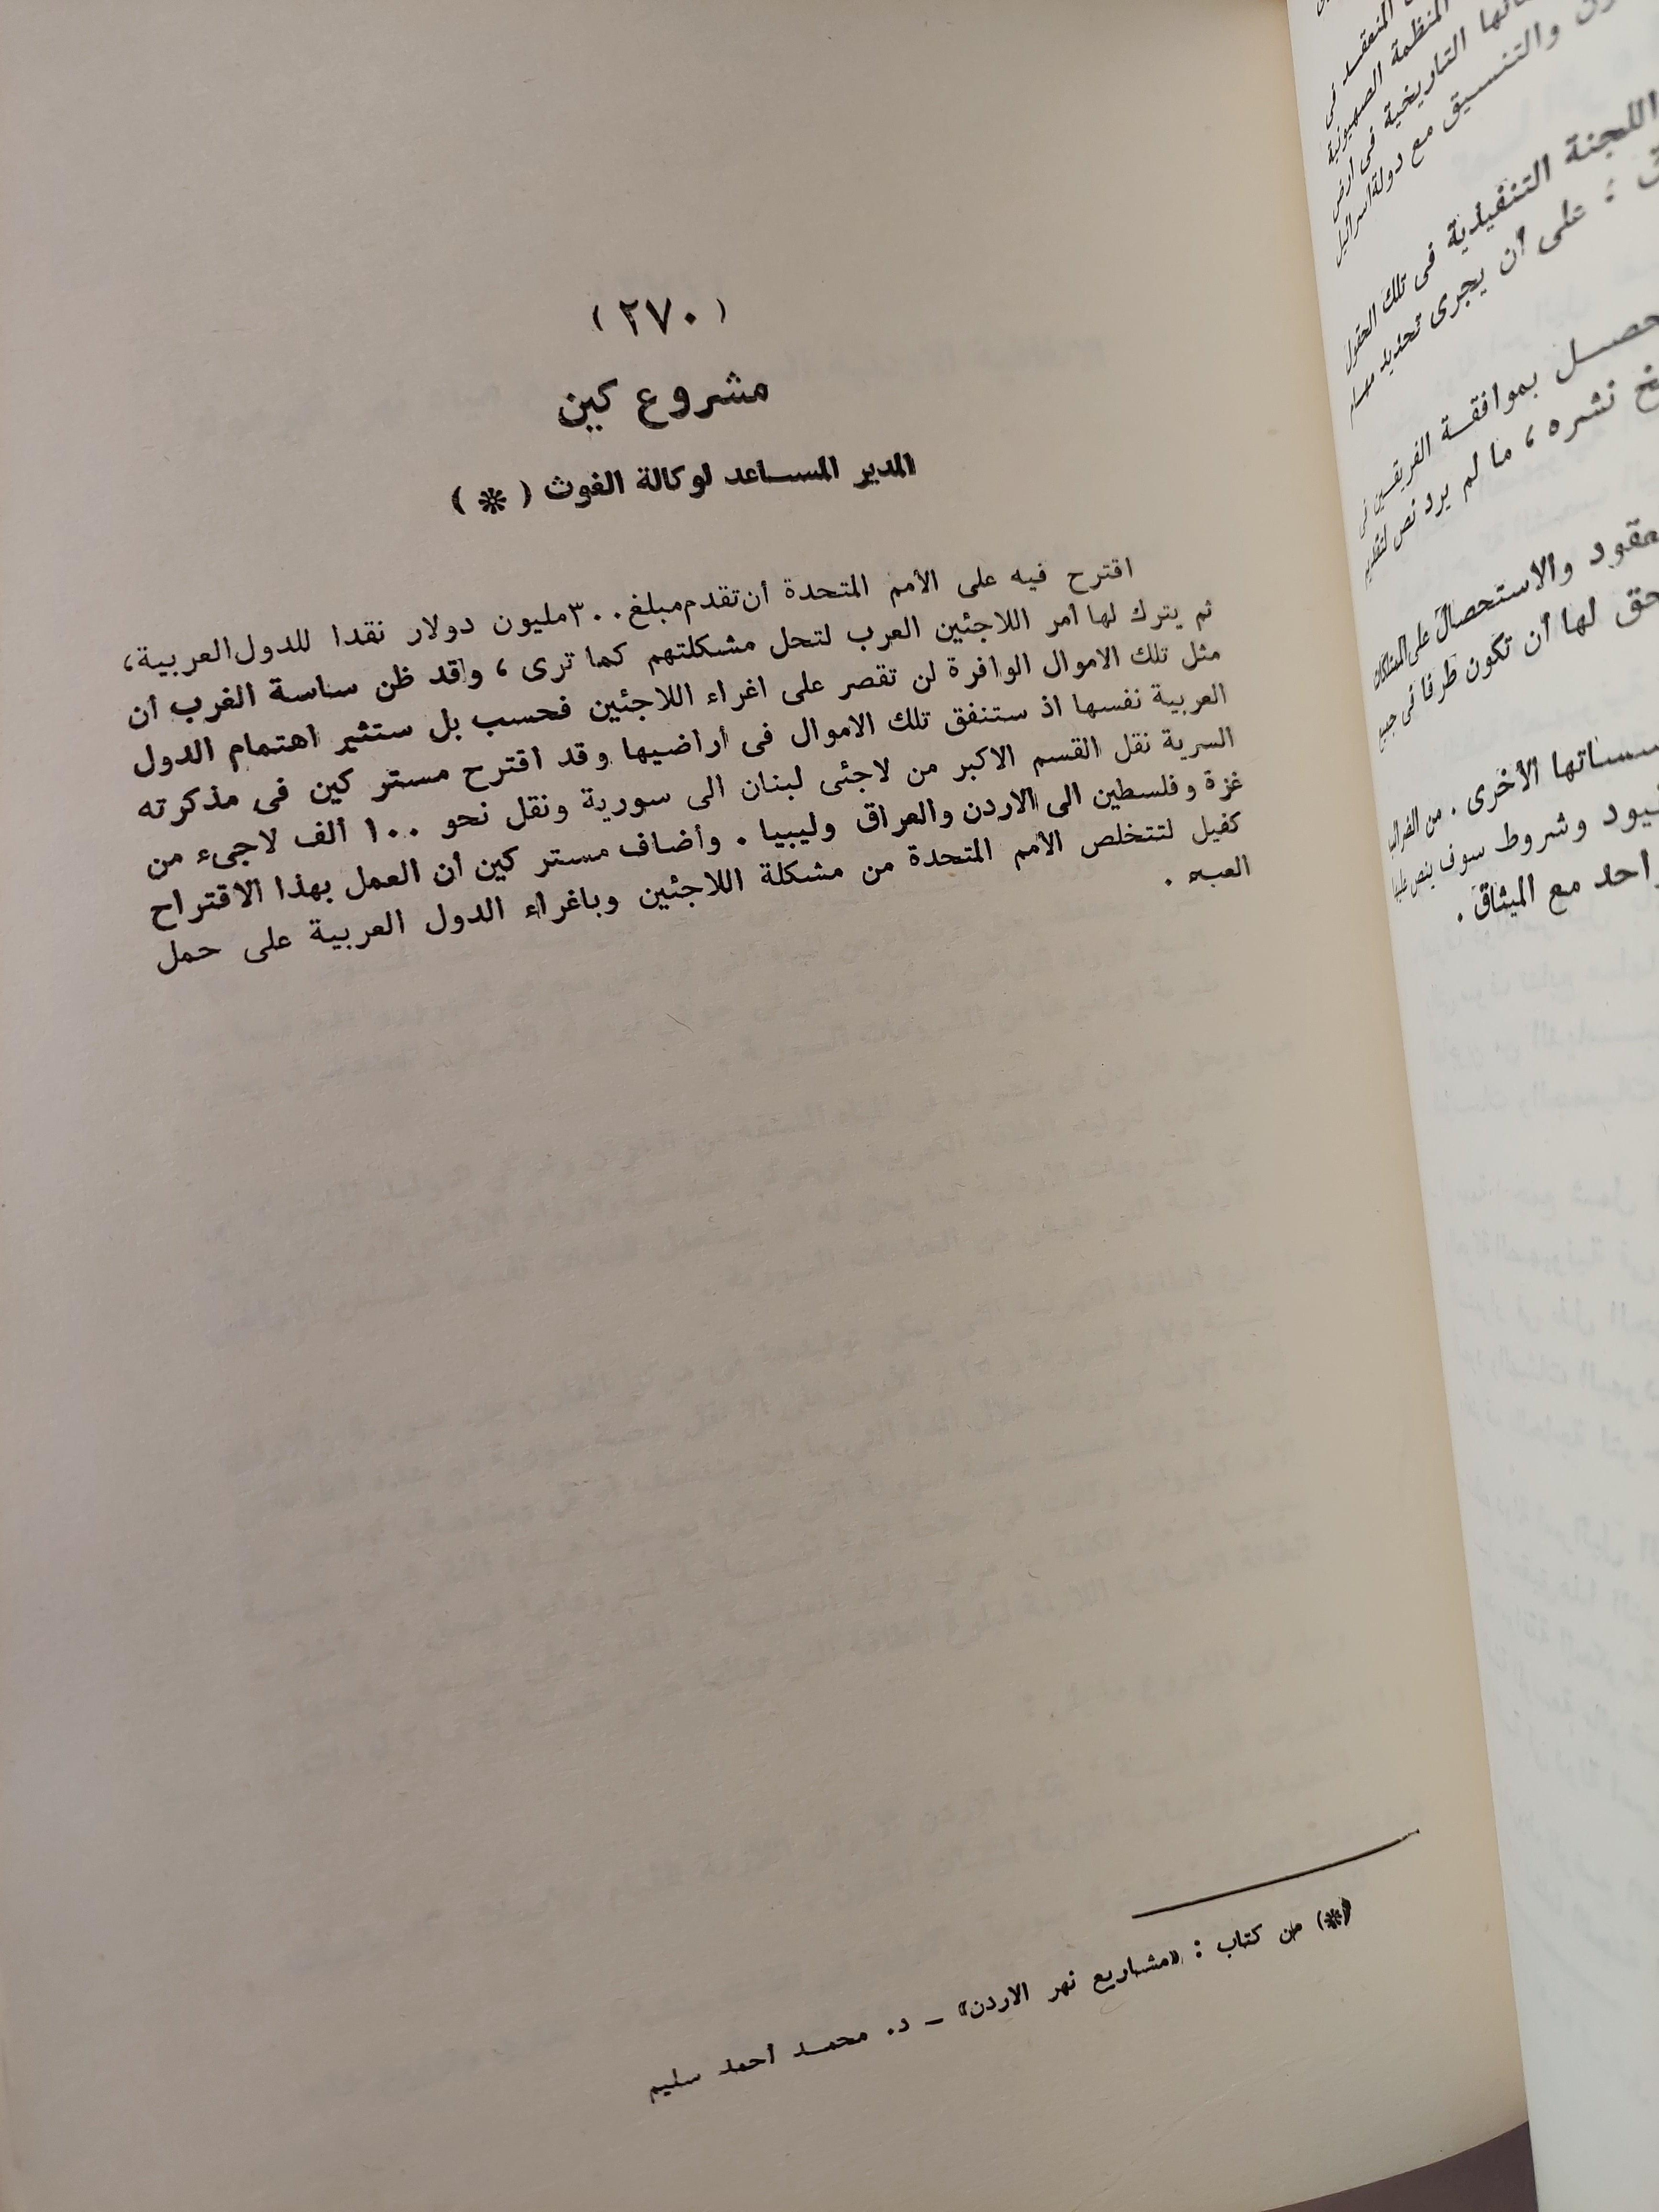 (٢٧٠)
مشروع كين
المدير المساعد لوكالة الغوث (*)
اقترح فيه على الأمم المتحدة أن تقدم مبلغ ٣٠٠ مليون دولار نقدا للدول العربية،
ثم يترك لها أمر اللاجئين العرب لتحل مشكلتهم كما ترى، ولقد ظن ساسة الغرب أن
مثل تلك الاموال الوافرة لن تقصر على اغراء اللاجئين فحسب بل ستثير اهتمام الدول
العربية نفسها اذ ستنفق تلك الاموال فى أراضيها وقد اقترح مستر كين فى مذكرته
السرية نقل القسم الاكبر من لاجئى لبنان الى سورية ونقل نحو ١٠٠ ألف لاجىء من
غزة وفلسطين الى الاردن والعراق وليبيا. وأضاف مستر كين أن العمل بهذا الاقتراح
كفيل لتتخلص الأمم المتحدة من مشكلة اللاجئين وباغراء الدول العربية على حمل
العبء.
(*) من كتاب: «مشاريع نهر الاردن» ــ د. محمد أحمد سليم
المنعقد فى
المنظمة الصهيونية
التاريخية فى أرض
والتنسيق مع دولة اسرائيل
اللجنة التنفيذية فى تلك الحقول
: على أن يجرى تحديد
بموافقة الفريقين فى
نشره، ما لم يرد نص
والاستحصال على
لها أن تكون طرفا فى جميع
الأخرى. من
وشروط سوف ينص عليها
مع الميثاق.